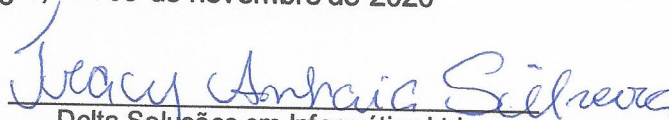 de novembro de 2020
Iracy Anhaia Silveira
Delta Soluções em Informática Ltda